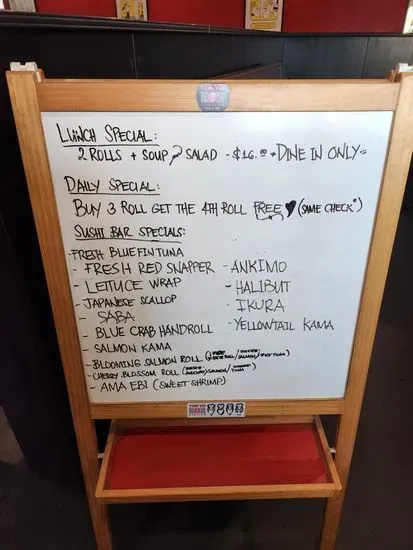 LUNCH SPECIAL:
2 ROLLS + SOUP & SALAD - $16.00 * DINE IN ONLY *
DAILY SPECIAL:
BUY 3 ROLL GET THE 4TH ROLL FREE ♥ (SAME CHECK*)
SUSHI BAR SPECIALS:
- FRESH BLUEFIN TUNA
- FRESH RED SNAPPER - ANKIMO
- LETTUCE WRAP - HALIBUT
- JAPANESE SCALLOP - IKURA
- SABA - YELLOWTAIL KAMA
- BLUE CRAB HANDROLL
- SALMON KAMA
- BLOOMING SALMON ROLL
- CHERRY BLOSSOM ROLL
- AMA EBI (SWEET SHRIMP)
TOKYO